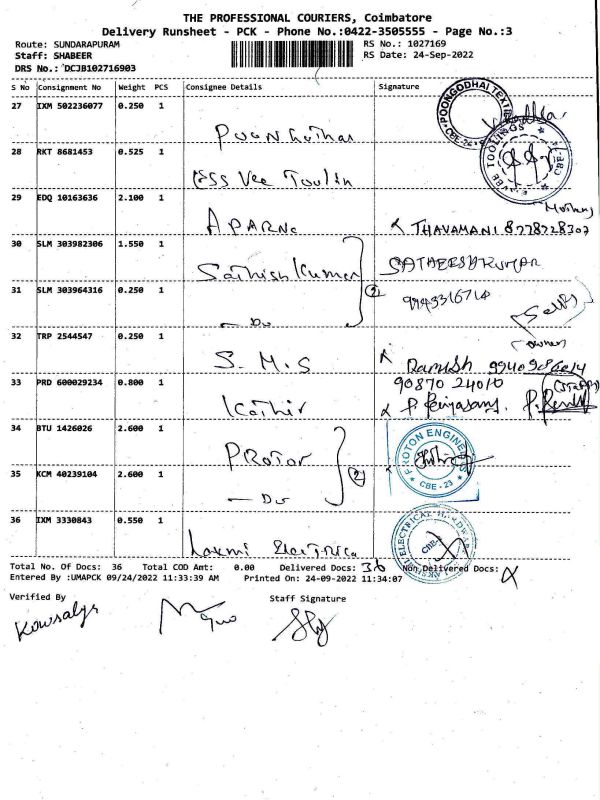 THE PROFESSIONAL COURIERS, Coimbatore
Delivery Runsheet - PCK - Phone No.:0422-3505555 - Page No.:3
Route: SUNDARAPURAM RS No.: 1027169
Staff: SHABEER RS Date: 24-Sep-2022
DRS No.: DCJB102716903
S No Consignment No Weight PCS Consignee Details Signature
27 IXM 502236077 0.250 1
POONGODHAI TEXTI
28 RKT 8681453 0.525 1
ESS Vee Toolin
VEE TOOLINGS CBE
29 EDQ 10163636 2.100 1
APARNa THAVAMANI 8778728307
30 SLM 303982306 1.550 1
Sathish Kumar SATHEESHKUMAR
31 SLM 303964316 0.250 1
2
Do Self
32 TRP 2544547 0.250 1 owner
S. M. S Ramesh
33 PRD 600029234 0.800 1 90870 24010 (Staff)
Kathir P. Periyasamy.
34 BTU 1426026 2.600 1
PROTON ENGINEERS CBE - 23
Proton 2
35 KCM 40239104 2.600 1
Do
36 IXM 3330843 0.550 1
Laxmi Electrica
ELECTRICAL HARDWARE CBE
Total No. Of Docs: 36 Total COD Amt: 0.00 Delivered Docs: 36 Non Delivered Docs:
Entered By :UMAPCK 09/24/2022 11:33:39 AM Printed On: 24-09-2022 11:34:07
Verified By Staff Signature
Kowsalya